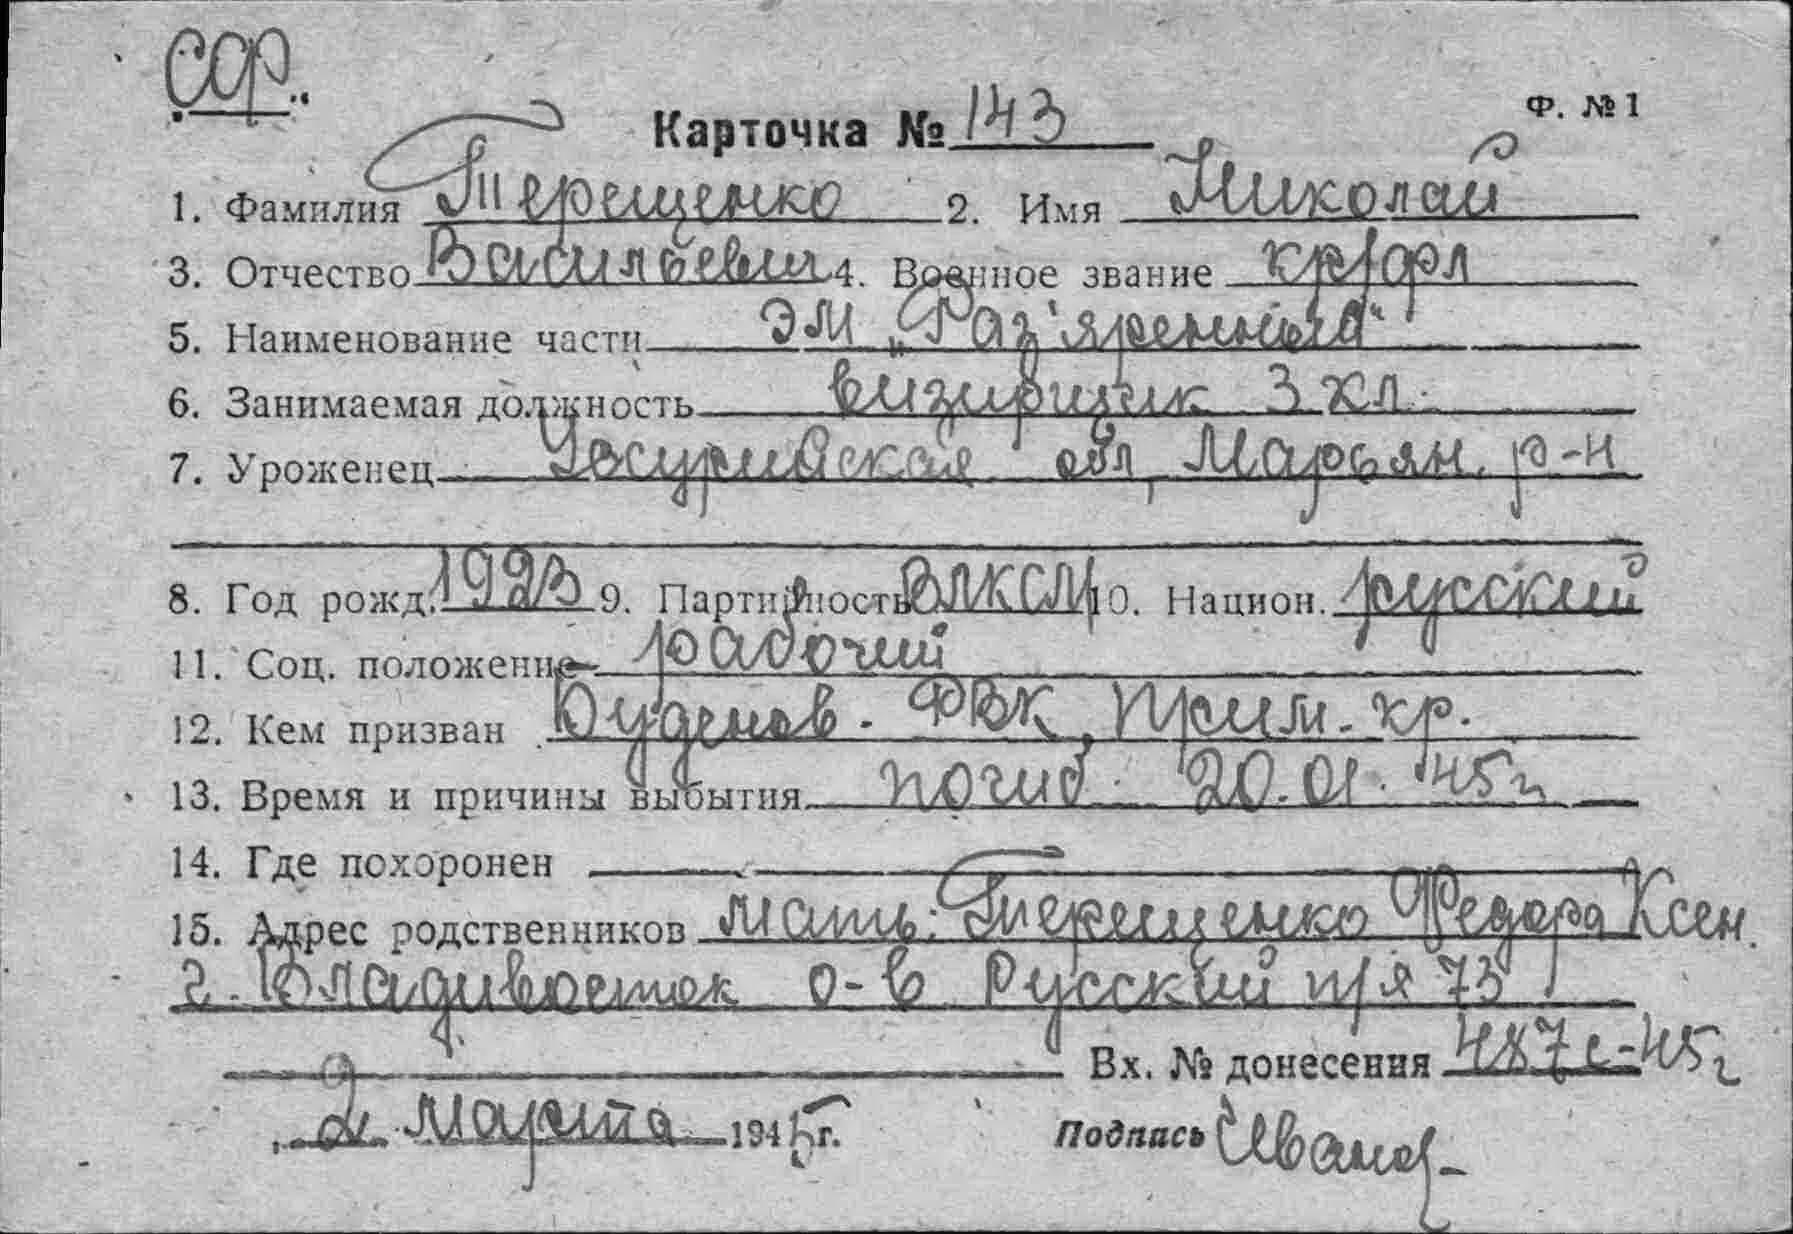 ССФ.
Карточка № 143
Ф. № 1
1. Фамилия Терещенко 2. Имя Николай
3. Отчество Васильевич 4. Военное звание кр/фл
5. Наименование части ЭМ „Раз'яренный"
6. Занимаемая должность визирщик 3 кл.
7. Уроженец Уссурийская обл, Марьян. р-н
8. Год рожд. 1923 9. Партийность ВЛКСМ 10. Национ. русский
11. Соц. положение рабочий
12. Кем призван Буденов. РВК, Прим. кр.
13. Время и причины выбытия погиб 20.01.45 г
14. Где похоронен
15. Адрес родственников мать: Терещенко Федора Ксен.
г. Владивосток о-в Русский п/я 73
Вх. № донесения 487с-45г
2 марта 1945 г.
Подпись Иванов